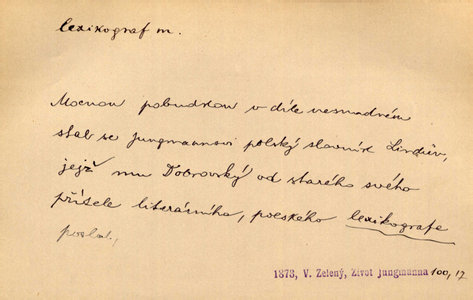 lexikograf m.
Mocnou pobudkou v díle nesnadném
stal se Jungmannovi polský slovník Lindův,
jejž mu Dobrovský od starého svého
přítele literárního, polského lexikografa
poslal.,
1873, V. Zelený, Život Jungmanna 100,17